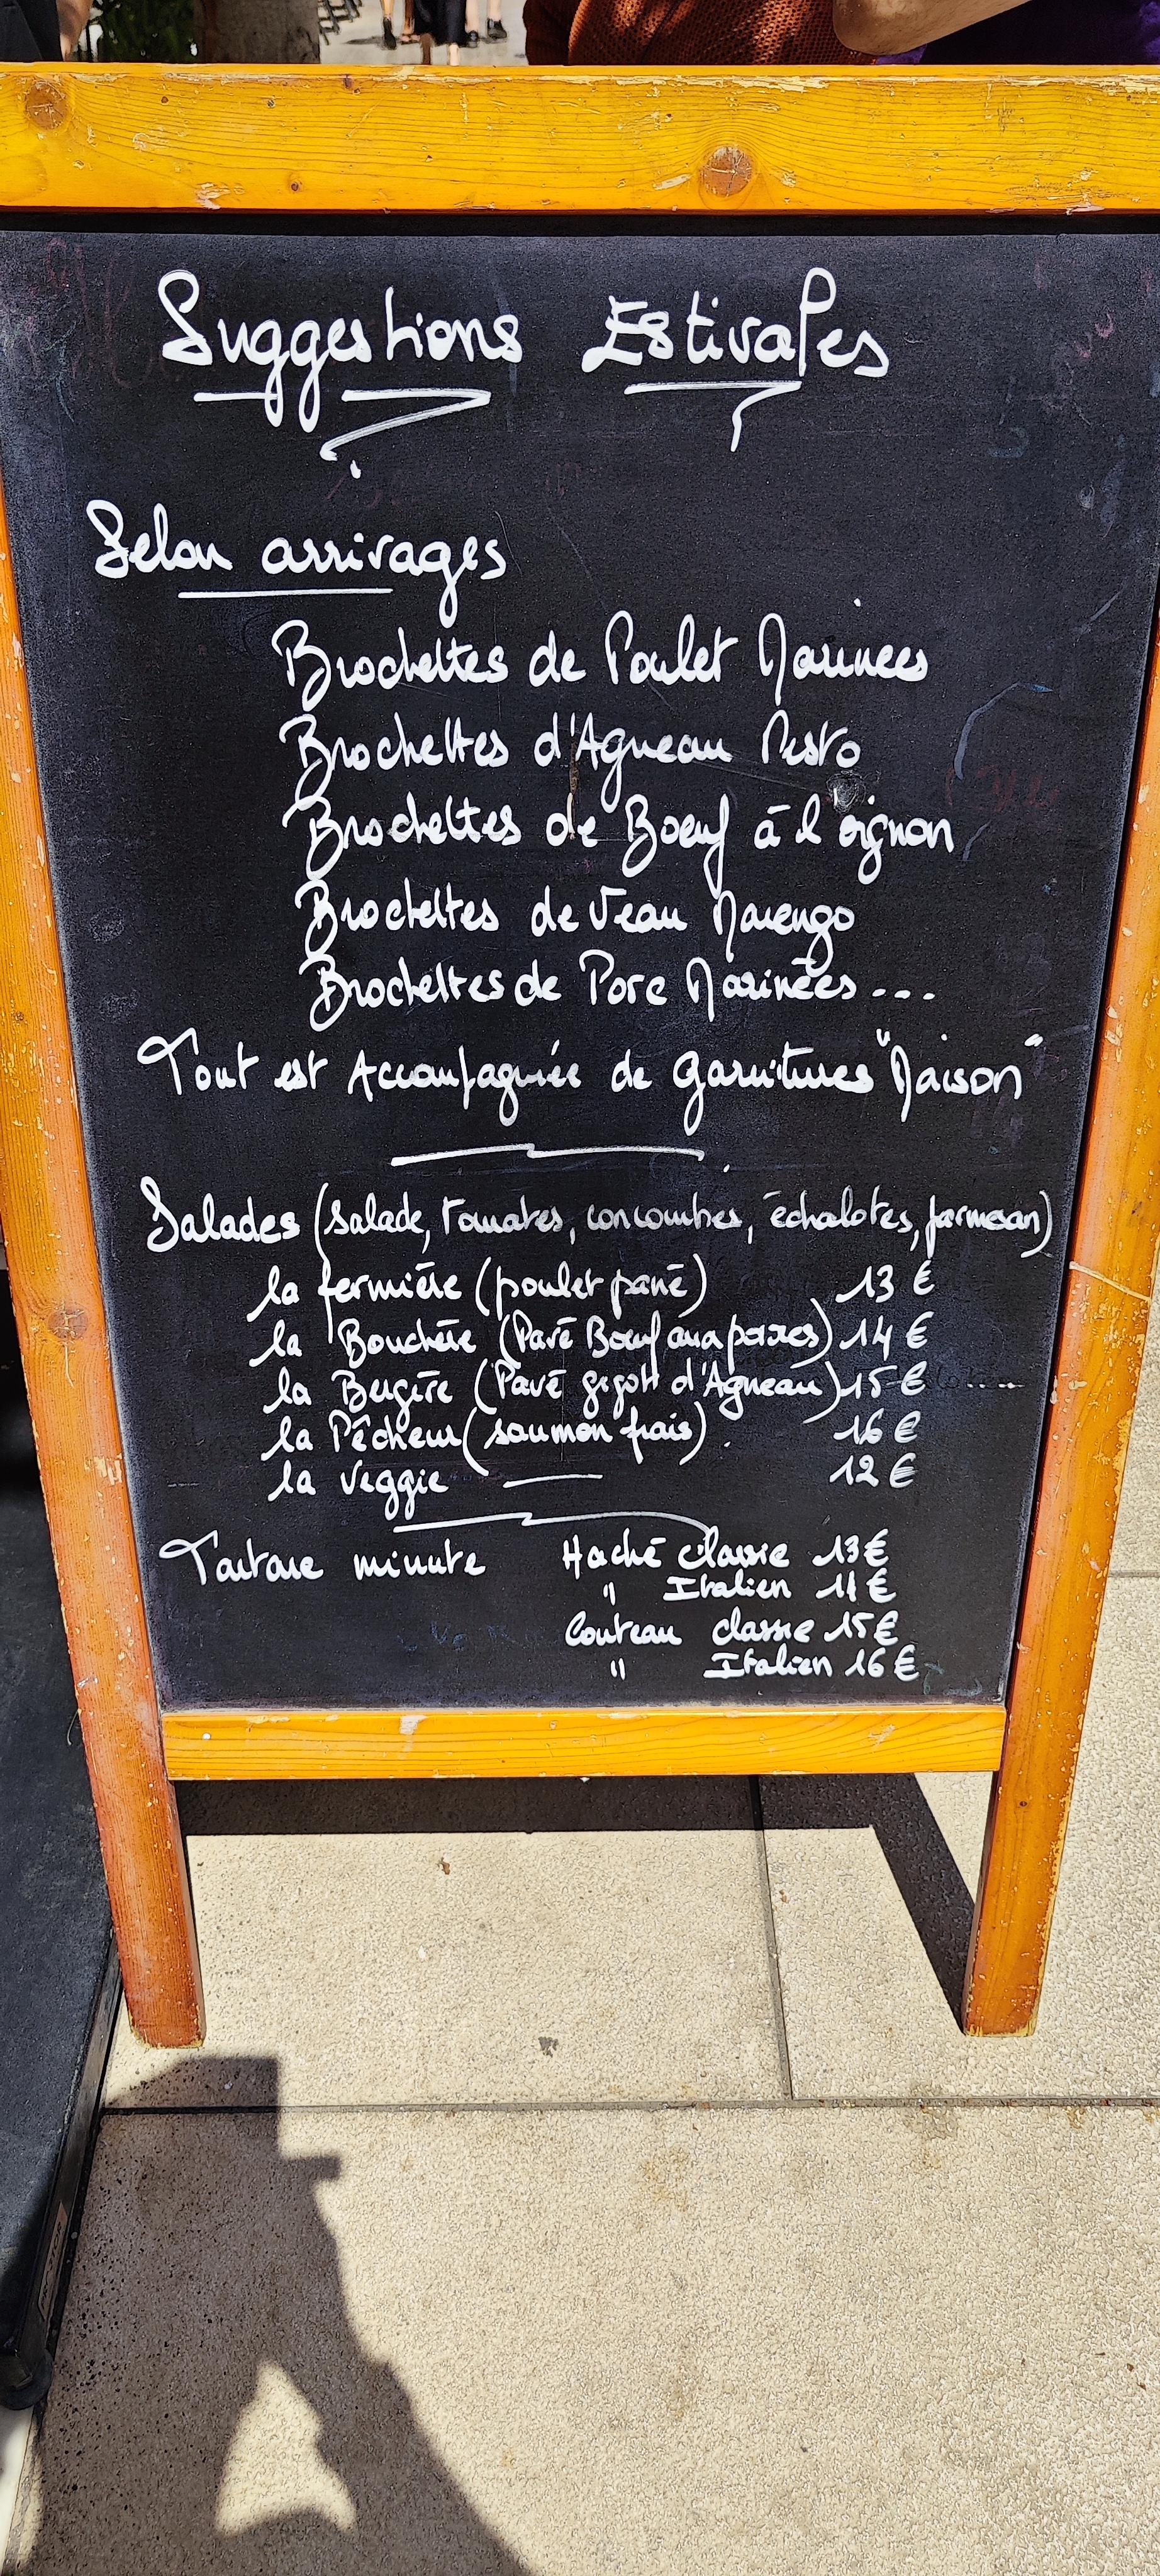 Suggestions Estivales
Selon arrivages
Brochettes de Poulet Marinees
Brochettes d'Agneau Pesto
Brochettes de Boeuf à l'oignon
Brochettes de Veau Marengo
Brochettes de Porc Marinées...
Tout est Accompagnée de Garnitures "Maison"
Salades (salade, tomates, concombres, échalotes, parmesan)
la fermière (poulet pané) 13 €
la Bouchère (Pavé Boeuf aux poivres) 14 €
la Bergère (Pavé gigot d'Agneau) 15 €
la Pêcheur (saumon frais). 16 €
la Veggie 12 €
Tartare minute Haché classic 13€
" Italien 14€
Couteau classic 15€
" Italien 16€